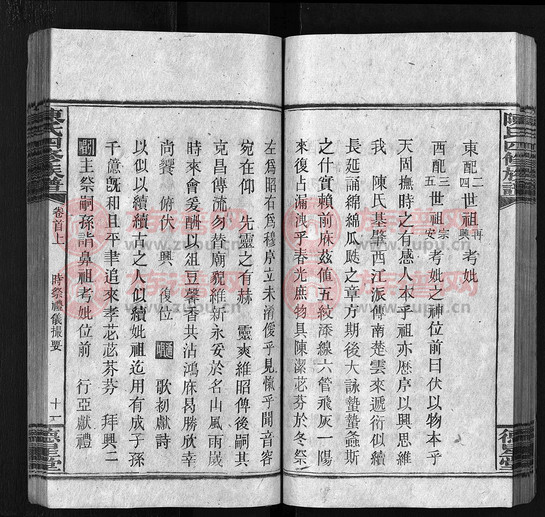 陳氏四修族譜
東配 二四 世祖 再興 考妣
西配 三五 世祖 宗安 考妣之神位前曰伏以物本乎
天固撫時之有感人本乎祖亦歷序以興思維
我 陳氏基肇西江派傳南楚雲來遞衍似續
長延誦綿綿瓜瓞之章方期後大詠蟄蟄螽斯
之什實賴前庥茲値五紋添線六管飛灰一陽
來復占漏洩乎春光庶物具陳潔苾芬於冬祭
左爲昭右爲穆序立未清僾乎見愾乎聞音容
宛在仰 先靈之有赫 靈爽維昭俾後嗣其
克昌傳流勿替廟貌維新永安於名山風雨歲
時來會爰酬以俎豆馨香共沾鴻庥曷勝欣幸
尚饗 俯伏 興 復位 歌初獻詩
以似以續續古之人似續妣祖迄用有成子孫
千億旣和且平聿追來孝苾苾芬芬 拜興二
主祭嗣孫詣鼻祖考妣位前 行亞獻禮
陳氏四修族譜
卷首上
時祭禮儀撮要
十一
德星堂
族譜网
www.zupu.cn